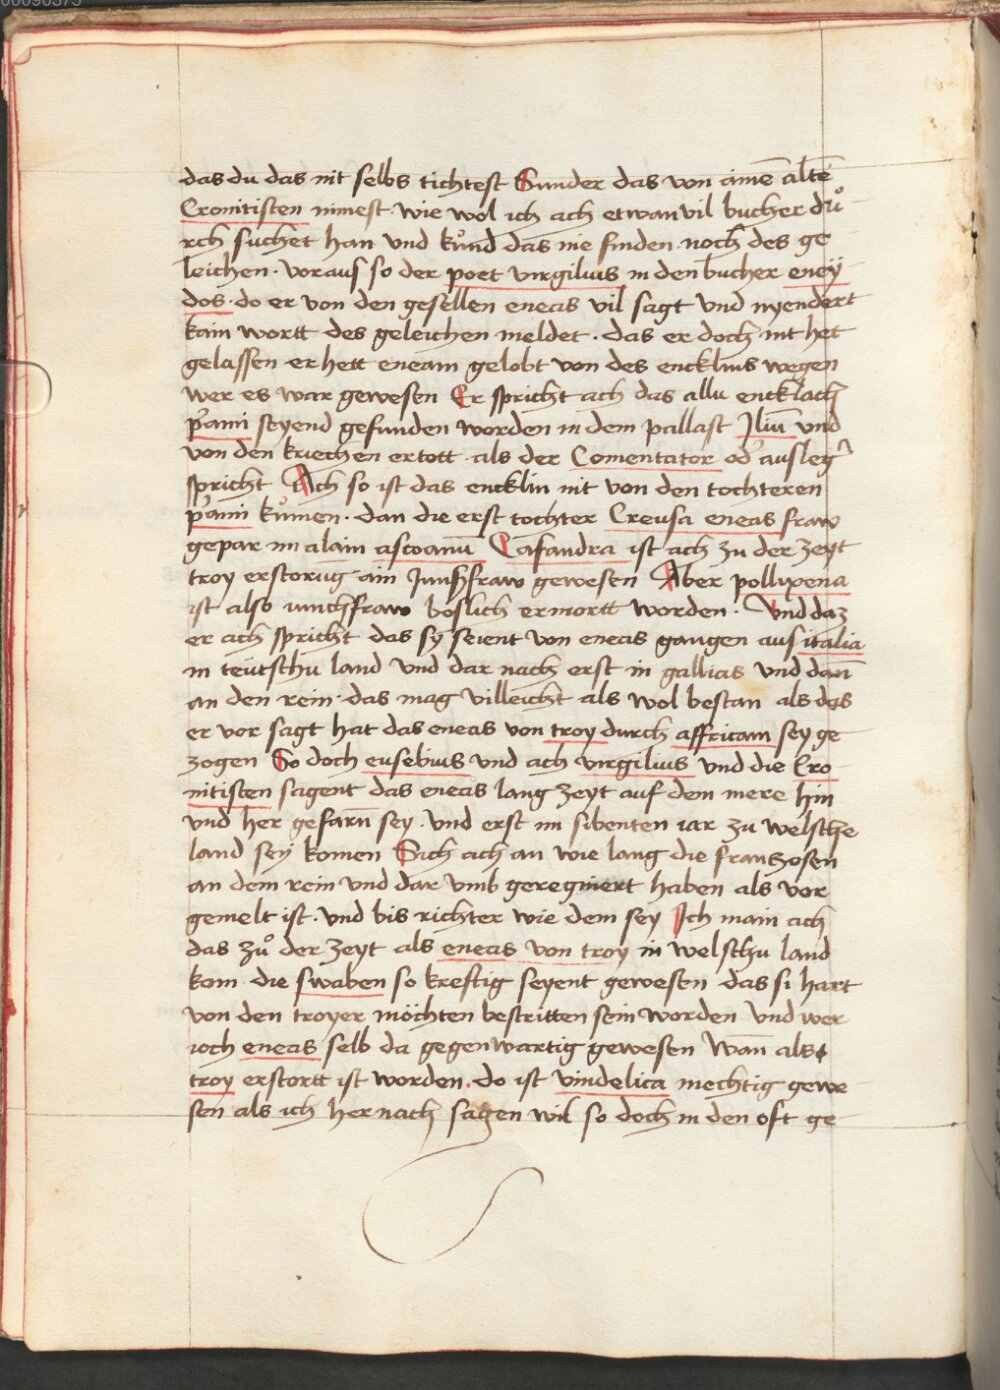 das du das nit selbs tichtest Sunder das von aimē altē
Cronitisten nimest wie wol ich ach etwan vil bucher dů
rch suchet han und kůnd das nie finden noch des ge
leichen. voraus so der poet virgilius in den bucher eney
dos. do er von den gesellen eneas vil sagt und nyendert
kain wortt des geleichen meldet. das er doch nit het
gelassen er hett eneam gelobt von des encklins wegen
wer es war gewesen Er spricht ach das allu encklach
p'ami seyend gefunden worden in dem pallast Iliū und
von den kriechen ertott. als der Comentator od' ausleg'
spricht Ach so ist das encklin nit von den tochteren
p'ami kůmen. dan die erst tochter Creusa eneas fraw
gepar im alain ascanū Casandra ist ach zu der zeyt
troy erstorūg ain Junckfraw gewesen Aber pollixena
ist also iunckfraw boslich ermortt worden. Und daz
er ach spricht das sy seient von eneas gangen aus italia
in teütschu land und dar nach erst in gallias und dan̄
an den rein. das mag villeicht als wol bestan als das
er vor sagt hat das eneas von troy durch affricam sey ge
zogen So doch eusebius und ach virgilius und die Cro
nitisten sagent das eneas lang zeyt auf dem mere hin
und her gefarn̄ sey. und erst im sibenten iar zu welsche
land sey komen Sich ach an wie lang die franzosen
an dem rein und dar umb geregniert haben als vor
gemelt ist. und bis richter wie dem sey Ich main ach
das zů der zeyt als eneas von troy in welschu land
kom die swaben so kreftig seyent gewesen das si hart
von den troyer möchten bestritten sein worden und wer
ioch eneas selb da gegenwartig gewesen Wan̄ als
troy erstortt ist worden. do ist vindelica mechtig gewe
sen als ich hernach sagen wil so doch in den oft ge